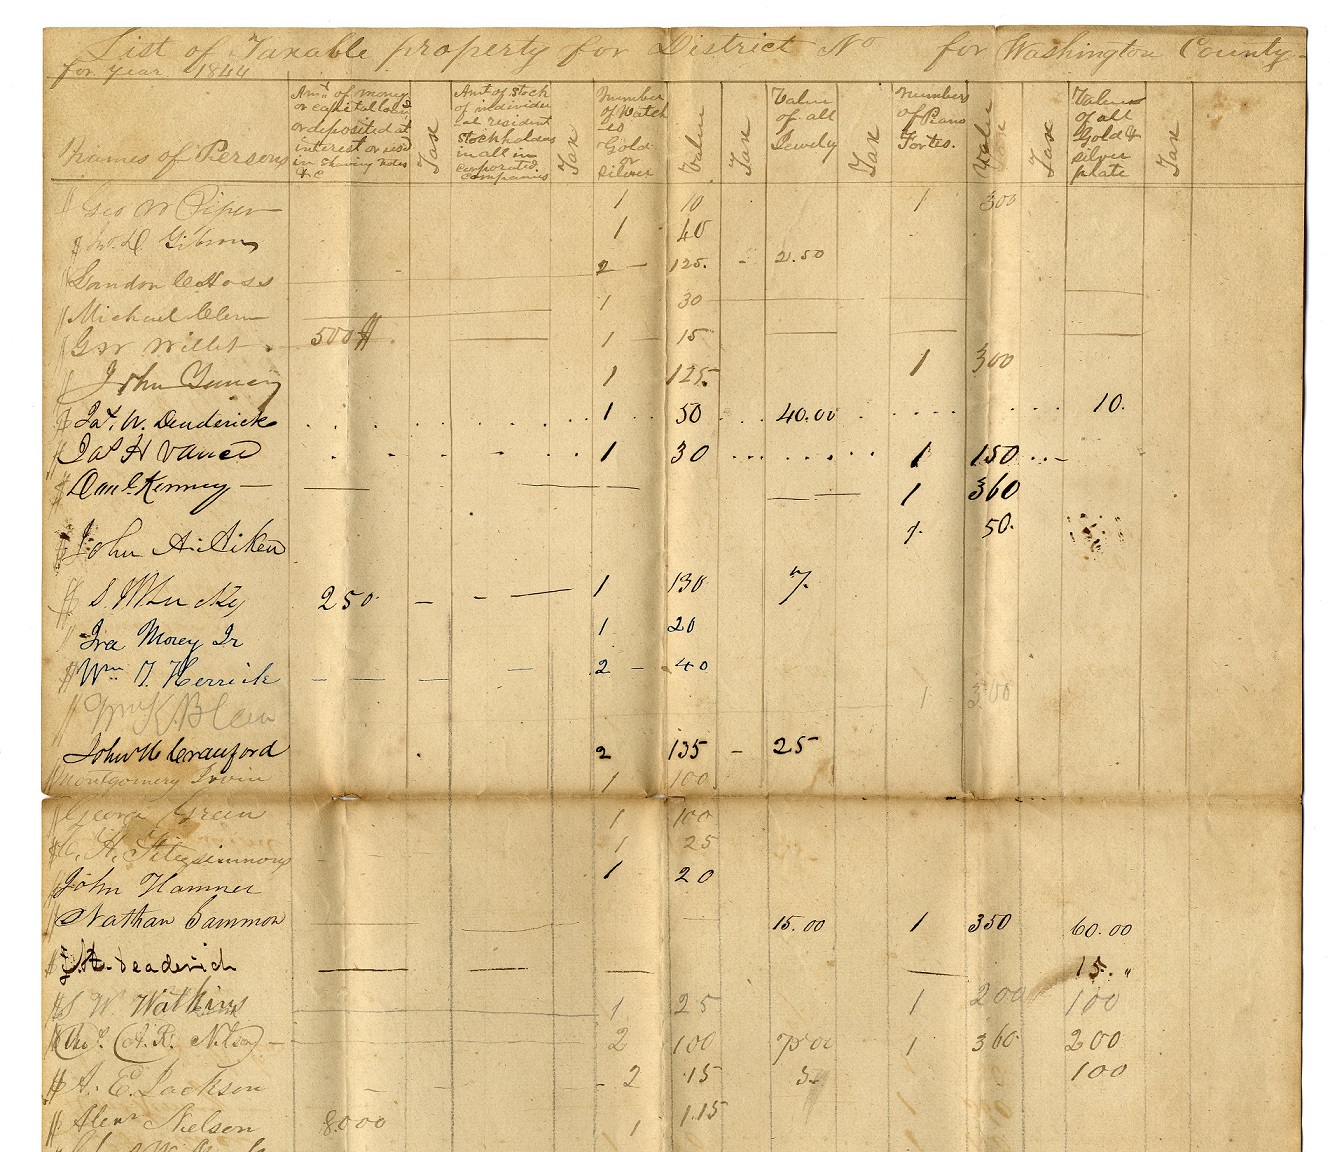 List of Taxable property for District No for Washington County
for year 1844
Names of Persons
Amt of money or capital loaned or deposited at interest or used in shaving notes &c
Tax
Amt of stock of individual resident stockholders in all incorporated companies
Tax
Number of Watches Gold or silver
Value
Tax
Value of all Jewelry
Tax
Number of Piano Fortes.
Value
Tax
Value of all Gold & silver plate
Tax
Geo W Piper 1 10 1 300
Jno. D. Gibson 1 40
Landon C Hoss 2 125. 2.50
Michael Clem 1 30
G W Willet 500$ 1 15
John Yancy 1 125. 1 300
Jas. W. Deaderick 1 50 40.00 10.
Jas H Vance 1 30 1 150
Danl Kenney 1 360
John A. Aiken 1. 50.
S. 250 1 130 7.
Ira Morey Jr 1 20
Wm T. Herrick 2 40
Wm K. Blair 1 300
John H Crawford 2 135 25
Montgomery Irvin 1 100
George Green 1 100
C. A. Fitzsimmons 1 25
John Hammer 1 20
Nathan Gammon 15.00 1 350 60.00
Deaderick 15. "
S W Watkins 1 25 1 200 100
Thos. A. R. Nelson 2 100 75.00 1 360 200
A. E. Jackson 2 15 5. 100
Alexr Nelson 8000 1 1.15